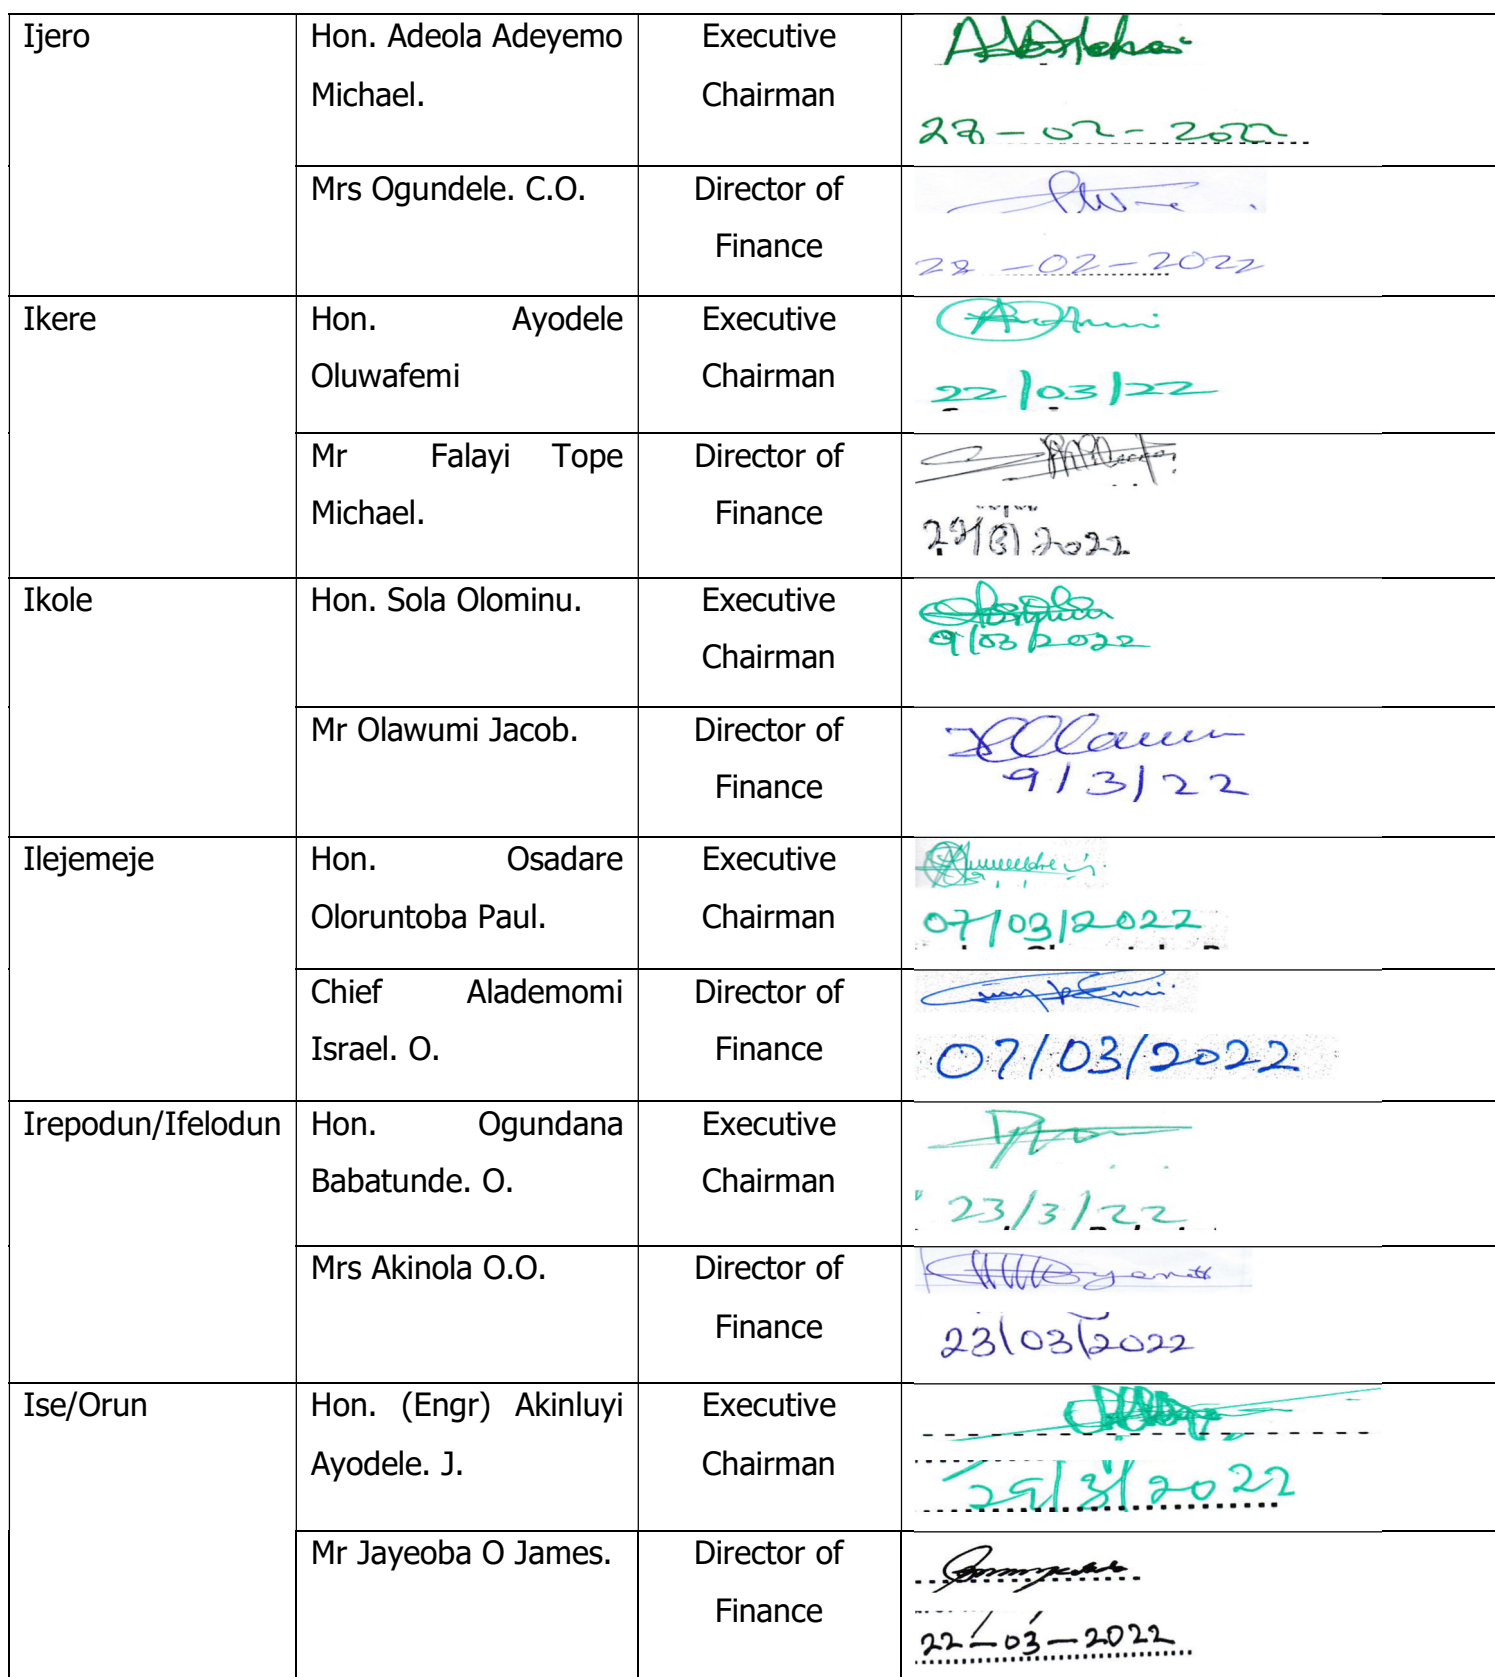 Ijero
Hon. Adeola Adeyemo
Michael.
Executive
Chairman
28-02-2022
Mrs Ogundele. C.O.
Director of
Finance
28-02-2022
Ikere
Hon. Ayodele
Oluwafemi
Executive
Chairman
22/03/22
Mr Falayi Tope
Michael.
Director of
Finance
Ikole
Hon. Sola Olominu.
Executive
Chairman
9/03/2022
Mr Olawumi Jacob.
Director of
Finance
9/3/22
Ilejemeje
Hon. Osadare
Oloruntoba Paul.
Executive
Chairman
07/03/2022
Chief Alademomi
Israel. O.
Director of
Finance
07/03/2022
Irepodun/Ifelodun
Hon. Ogundana
Babatunde. O.
Executive
Chairman
23/3/22
Mrs Akinola O.O.
Director of
Finance
23/03/2022
Ise/Orun
Hon. (Engr) Akinluyi
Ayodele. J.
Executive
Chairman
29/3/2022
Mr Jayeoba O James.
Director of
Finance
22-03-2022